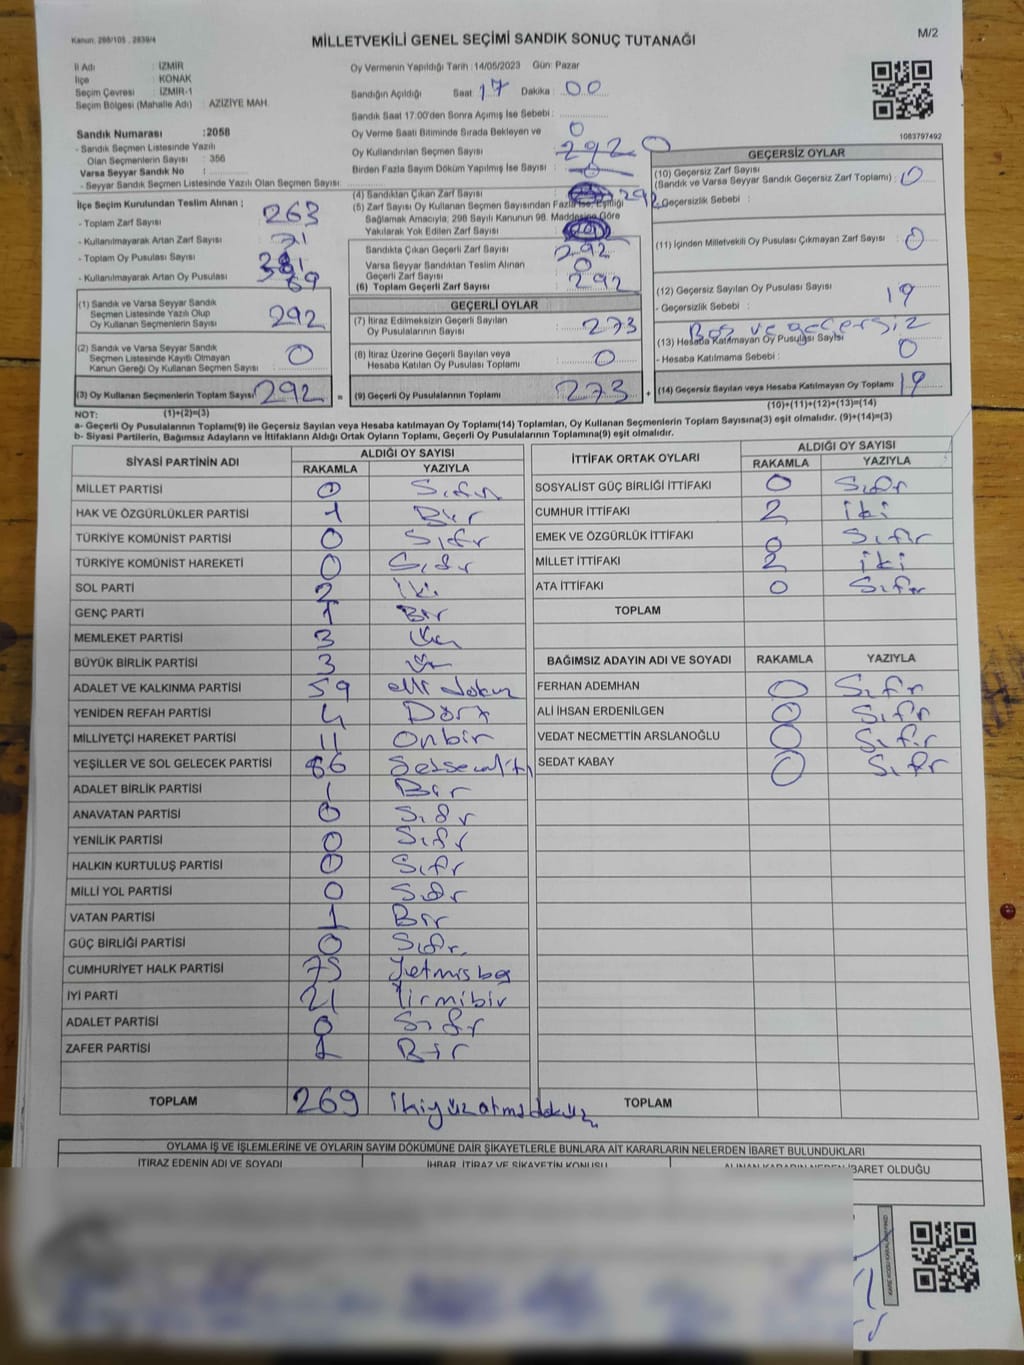 Kanun: 298/105 , 2839/4
MİLLETVEKİLİ GENEL SEÇİMİ SANDIK SONUÇ TUTANAĞI
M/2
İl Adı : İZMİR
İlçe : KONAK
Seçim Çevresi : İZMİR-1
Seçim Bölgesi (Mahalle Adı) : AZİZİYE MAH.
Sandık Numarası :2058
- Sandık Seçmen Listesinde Yazılı
Olan Seçmenlerin Sayısı : 356
Varsa Seyyar Sandık No :
- Seyyar Sandık Seçmen Listesinde Yazılı Olan Seçmen Sayısı:
Oy Vermenin Yapıldığı Tarih :14/05/2023 Gün: Pazar
Sandığın Açıldığı Saat 17 Dakika : 00
Sandık Saat 17:00'den Sonra Açımış İse Sebebi :
Oy Verme Saati Bitiminde Sırada Bekleyen ve
Oy Kullandırılan Seçmen Sayısı : 0
Birden Fazla Sayım Döküm Yapılmış İse Sayısı : 0
1083797492
İlçe Seçim Kurulundan Teslim Alınan ;
- Toplam Zarf Sayısı : 263
- Kullanılmayarak Artan Zarf Sayısı : 71
- Toplam Oy Pusulası Sayısı
- Kullanılmayarak Artan Oy Pusulası : 69
(1) Sandık ve Varsa Seyyar Sandık
Seçmen Listesinde Yazılı Olup
Oy Kullanan Seçmenlerin Sayısı : 292
(2) Sandık ve Varsa Seyyar Sandık
Seçmen Listesinde Kayıtlı Olmayan
Kanun Gereği Oy Kullanan Seçmen Sayısı : 0
(3) Oy Kullanan Seçmenlerin Toplam Sayısı 292
(1)+(2)=(3)
(4) Sandıktan Çıkan Zarf Sayısı 292
(5) Zarf Sayısı Oy Kullanan Seçmen Sayısından Fazla İse, Eşitliği
Sağlamak Amacıyla, 298 Sayılı Kanunun 98. Maddesine Göre
Yakılarak Yok Edilen Zarf Sayısı
Sandıkta Çıkan Geçerli Zarf Sayısı : 292
Varsa Seyyar Sandıktan Teslim Alınan
Geçerli Zarf Sayısı : 0
(6) Toplam Geçerli Zarf Sayısı : 292
GEÇERLİ OYLAR
(7) İtiraz Edilmeksizin Geçerli Sayılan
Oy Pusulalarının Sayısı : 273
(8) İtiraz Üzerine Geçerli Sayılan veya
Hesaba Katılan Oy Pusulası Toplamı : 0
= (9) Geçerli Oy Pusulalarının Toplamı 273 +
GEÇERSİZ OYLAR
(10) Geçersiz Zarf Sayısı
(Sandık ve Varsa Seyyar Sandık Geçersiz Zarf Toplamı) : 0
- Geçersizlik Sebebi :
(11) İçinden Milletvekili Oy Pusulası Çıkmayan Zarf Sayısı : 0
(12) Geçersiz Sayılan Oy Pusulası Sayısı : 19
- Geçersizlik Sebebi : Boş ve geçersiz
(13) Hesaba Katılmayan Oy Pusulası Sayısı : 0
- Hesaba Katılmama Sebebi :
(14) Geçersiz Sayılan veya Hesaba Katılmayan Oy Toplamı 19
(10)+(11)+(12)+(13)=(14)
NOT:
a- Geçerli Oy Pusulalarının Toplamı(9) ile Geçersiz Sayılan veya Hesaba katılmayan Oy Toplamı(14) Toplamları, Oy Kullanan Seçmenlerin Toplam Sayısına(3) eşit olmalıdır. (9)+(14)=(3)
b- Siyasi Partilerin, Bağımsız Adayların ve İttifakların Aldığı Ortak Oyların Toplamı, Geçerli Oy Pusulalarının Toplamına(9) eşit olmalıdır.
SİYASİ PARTİNİN ADI ALDIĞI OY SAYISI
RAKAMLA YAZIYLA
MİLLET PARTİSİ 0 Sıfır
HAK VE ÖZGÜRLÜKLER PARTİSİ 1 Bir
TÜRKİYE KOMÜNİST PARTİSİ 0 Sıfır
TÜRKİYE KOMÜNİST HAREKETİ 0 Sıfır
SOL PARTİ 2 İki
GENÇ PARTİ 1 Bir
MEMLEKET PARTİSİ 3 Üç
BÜYÜK BİRLİK PARTİSİ 3 Üç
ADALET VE KALKINMA PARTİSİ 59 elli dokuz
YENİDEN REFAH PARTİSİ 4 Dört
MİLLİYETÇİ HAREKET PARTİSİ 11 Onbir
YEŞİLLER VE SOL GELECEK PARTİSİ 86 Seksenaltı
ADALET BİRLİK PARTİSİ 1 Bir
ANAVATAN PARTİSİ 0 Sıfır
YENİLİK PARTİSİ 0 Sıfır
HALKIN KURTULUŞ PARTİSİ 0 Sıfır
MİLLİ YOL PARTİSİ 0 Sıfır
VATAN PARTİSİ 1 Bir
GÜÇ BİRLİĞİ PARTİSİ 0 Sıfır
CUMHURİYET HALK PARTİSİ 75 Yetmişbeş
İYİ PARTİ 21 Yirmibir
ADALET PARTİSİ 0 Sıfır
ZAFER PARTİSİ 1 Bir
TOPLAM 269 ikiyüzatmışdokuz
İTTİFAK ORTAK OYLARI ALDIĞI OY SAYISI
RAKAMLA YAZIYLA
SOSYALİST GÜÇ BİRLİĞİ İTTİFAKI 0 Sıfır
CUMHUR İTTİFAKI 2 iki
EMEK VE ÖZGÜRLÜK İTTİFAKI 0 Sıfır
MİLLET İTTİFAKI 2 iki
ATA İTTİFAKI 0 Sıfır
TOPLAM
BAĞIMSIZ ADAYIN ADI VE SOYADI RAKAMLA YAZIYLA
FERHAN ADEMHAN 0 Sıfır
ALİ İHSAN ERDENİLGEN 0 Sıfır
VEDAT NECMETTİN ARSLANOĞLU 0 Sıfır
SEDAT KABAY 0 Sıfır
TOPLAM
OYLAMA İŞ VE İŞLEMLERİNE VE OYLARIN SAYIM DÖKÜMÜNE DAİR ŞİKAYETLERLE BUNLARA AİT KARARLARIN NELERDEN İBARET BULUNDUKLARI
İTİRAZ EDENİN ADI VE SOYADI İHBAR, İTİRAZ VE ŞİKAYETİN KONUSU ALINAN KARARIN NEDEN İBARET OLDUĞU